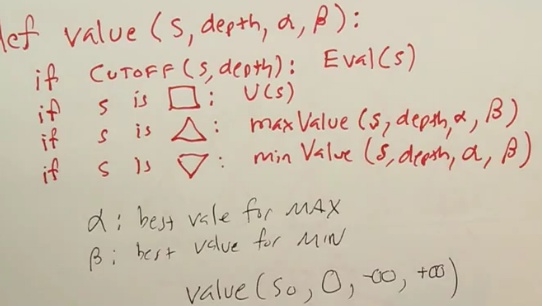 def value (s, depth, α, β):
if CUTOFF (s, depth): Eval(s)
if s is □: U(s)
if s is △: maxValue (s, depth, α, β)
if s is ▽: min Value (s, depth, α, β)
α: best vale for MAX
β: best value for MIN
value (s₀, 0, -∞, +∞)